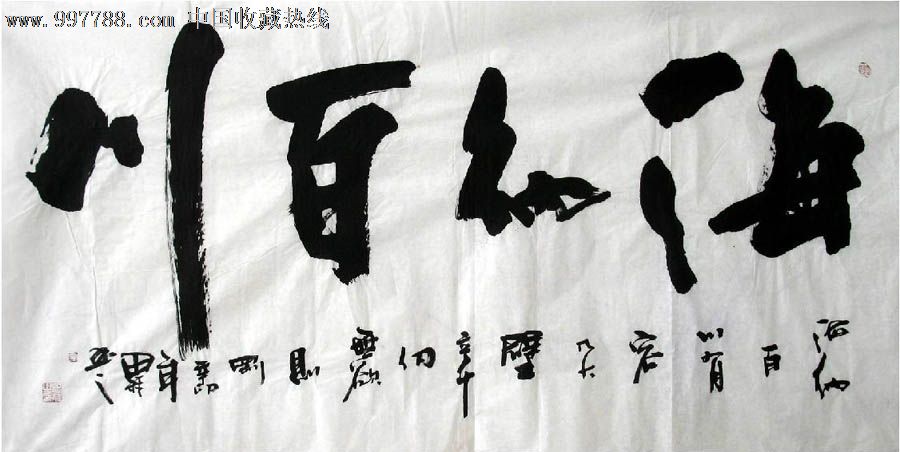 www.997788.com 中国收藏热线
海纳百川
海纳百川有容乃大壁立千仞無欲則剛